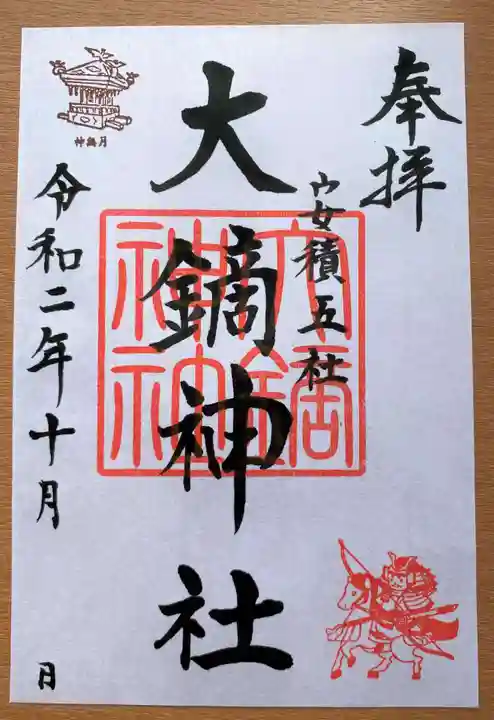 奉拝
安積五社
大鏑神社
令和二年十月 日
神無月